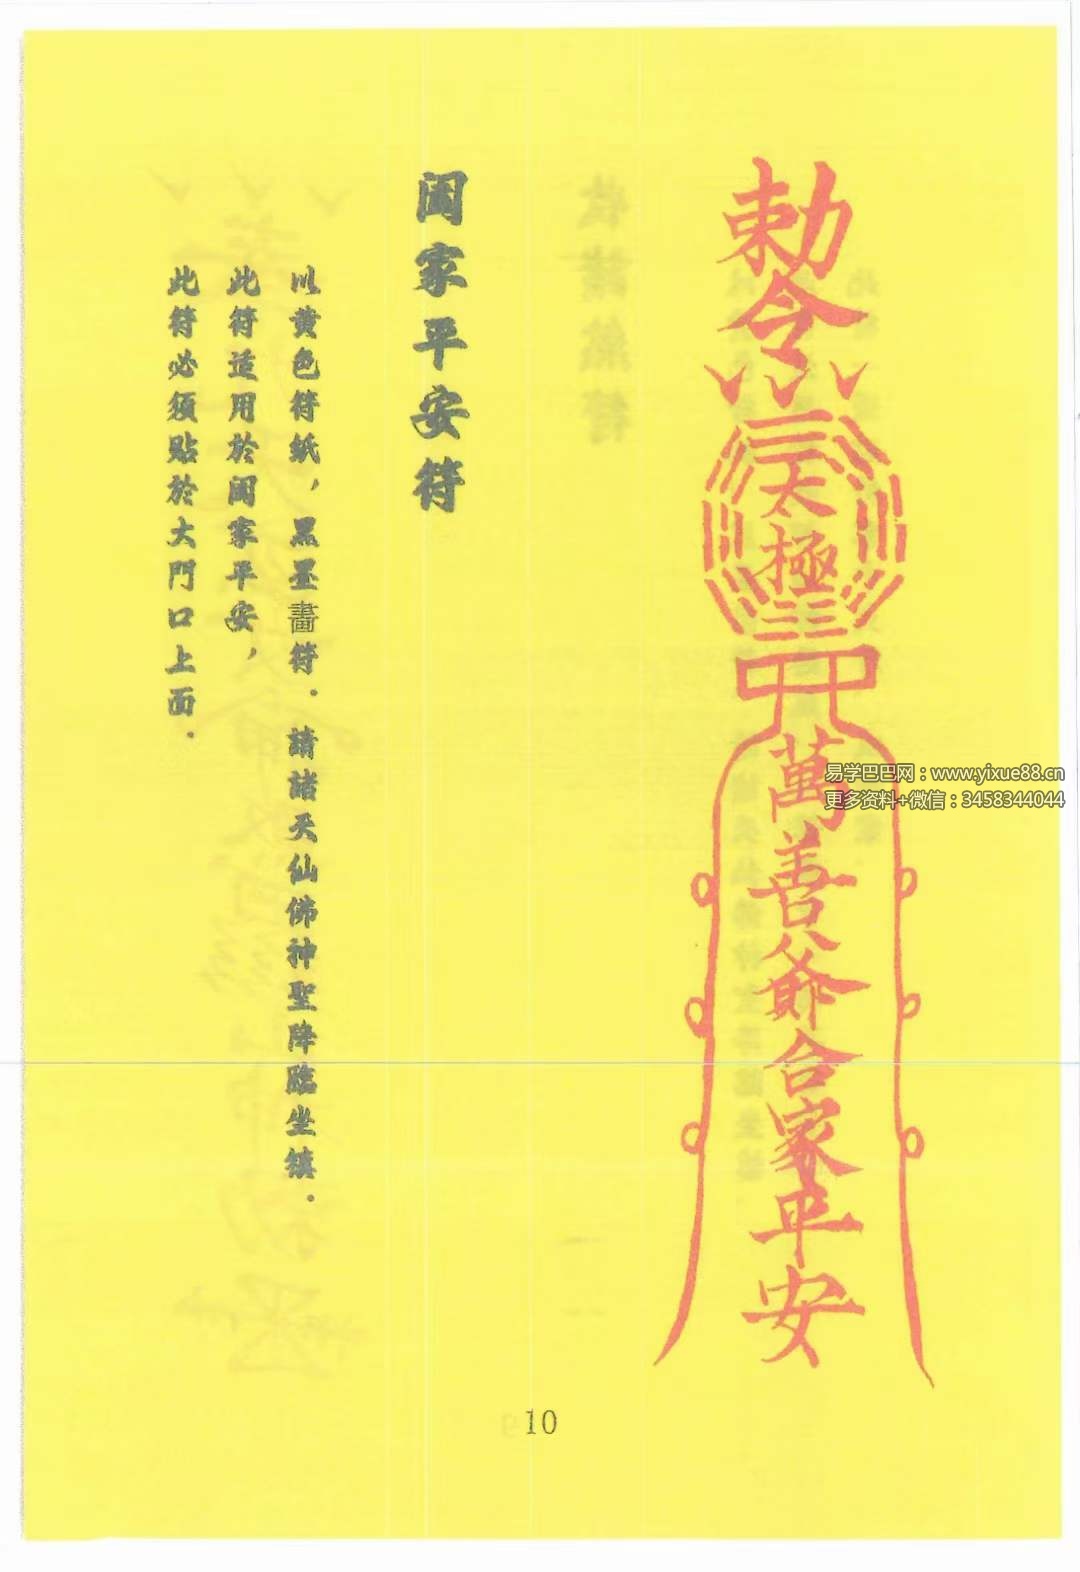 勅令
太極
萬善爺合家平安
闔家平安符
以黄色符紙，黑墨畵符．請諸天仙佛神聖降臨坐鎮．
此符适用於闔家平安，
此符必須貼於大門口上面．
易学巴巴网：www.yixue88.cn
更多资料+微信：3458344044
10